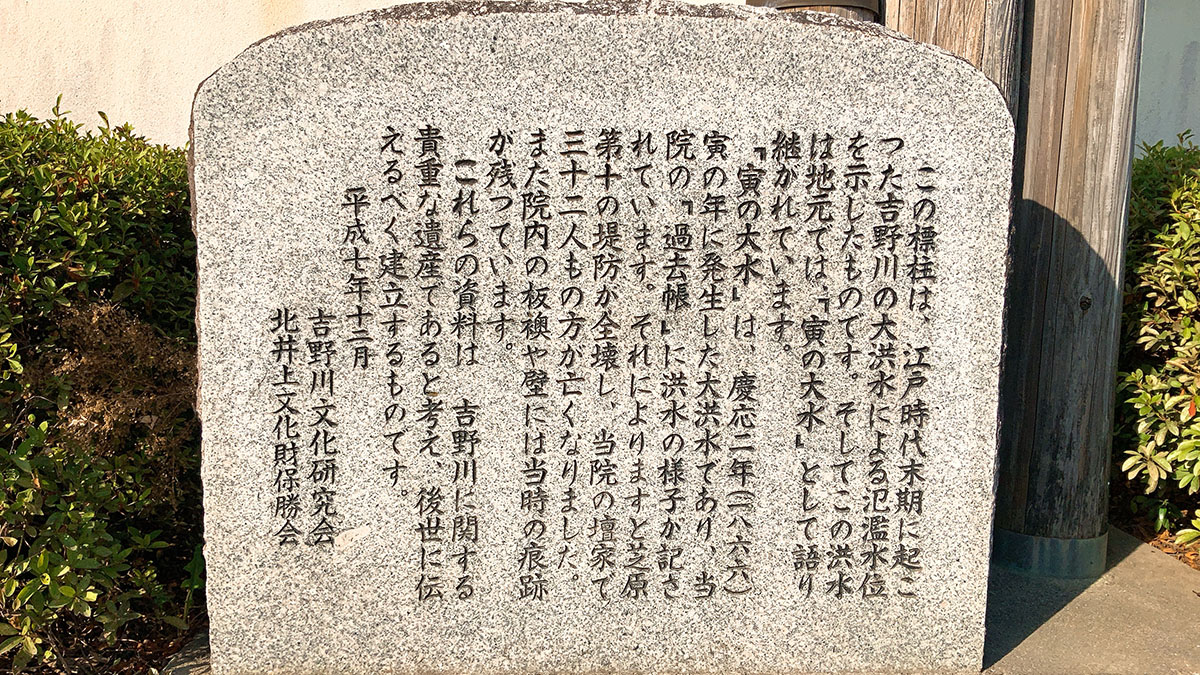 この標柱は、江戸時代末期に起こ
った吉野川の大洪水による氾濫水位
を示したものです。そしてこの洪水
は地元では、「寅の大水」として語り
継がれています。
「寅の大水」は、慶応二年(一八六六)
寅の年に発生した大洪水であり、当
院の「過去帳」に洪水の様子が記さ
れています。それによりますと芝原
第十の堤防が全壊し、当院の壇家で
三十二人もの方が亡くなりました。
また院内の板襖や壁には当時の痕跡
が残っています。
これらの資料は 吉野川に関する
貴重な遺産であると考え、後世に伝
えるべく建立するものです。
平成七年十二月
吉野川文化研究会
北井上文化財保勝会